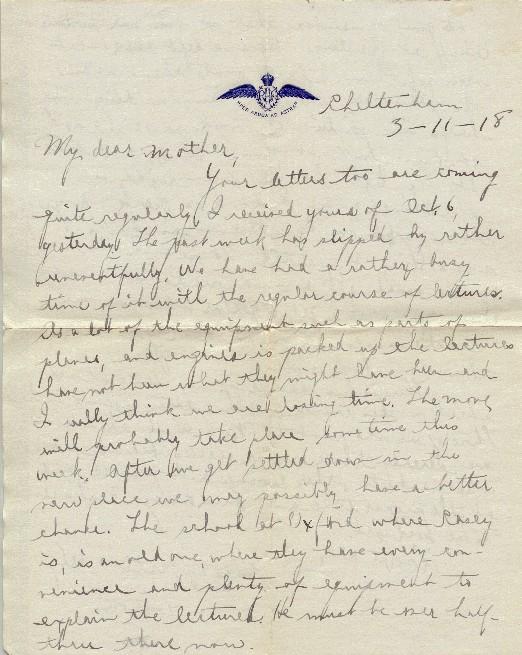 PER ARDUA AD ASTRA
Cheltenham
3-11-18
My dear Mother,
Your letters too are coming
quite regularly, I received yours of Oct. 6,
yesterday. The past week has slipped by rather
uneventfully. We have had a rather busy
time of it with the regular course of lectures.
As a lot of the equipment such as parts of
planes, and engines is packed up the lectures
have not been what they might have been and
I really think we are losing time. The move
will probably take place some time this
week. After we get settled down in the
new place we may possibly have a better
chance. The school at Oxford where Casey
is, is an old one, where they have every con-
venience and plenty of equipment to
explain the lectures. He must be over half-
thru there now.